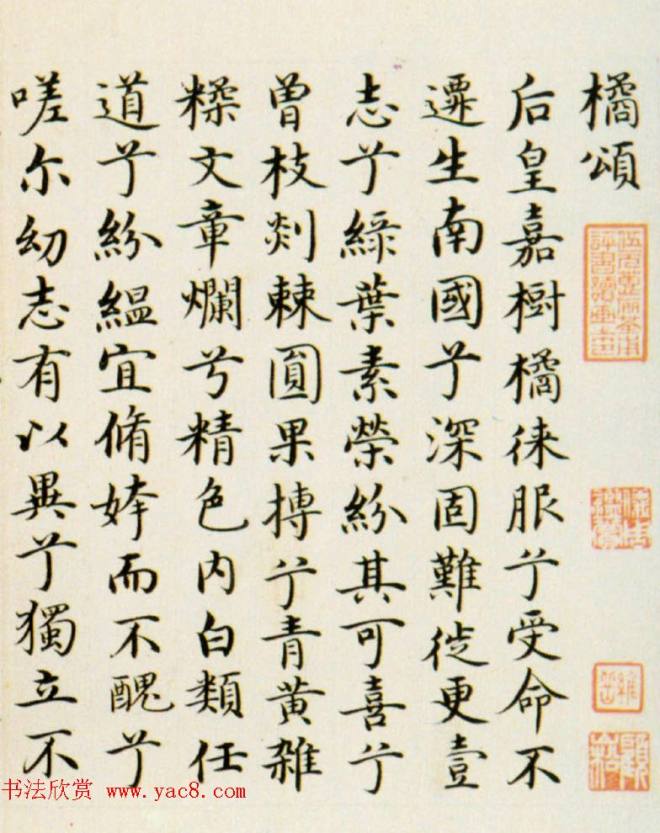 橘頌
后皇嘉樹橘徠服兮受命不
遷生南國兮深固難徙更壹
志兮綠葉素榮紛其可喜兮
曾枝剡棘圓果摶兮青黃雜
糅文章爛兮精色内白類任
道兮紛緼宜脩姱而不醜兮
嗟尔幼志有以異兮獨立不
书法欣赏 www.yac8.com